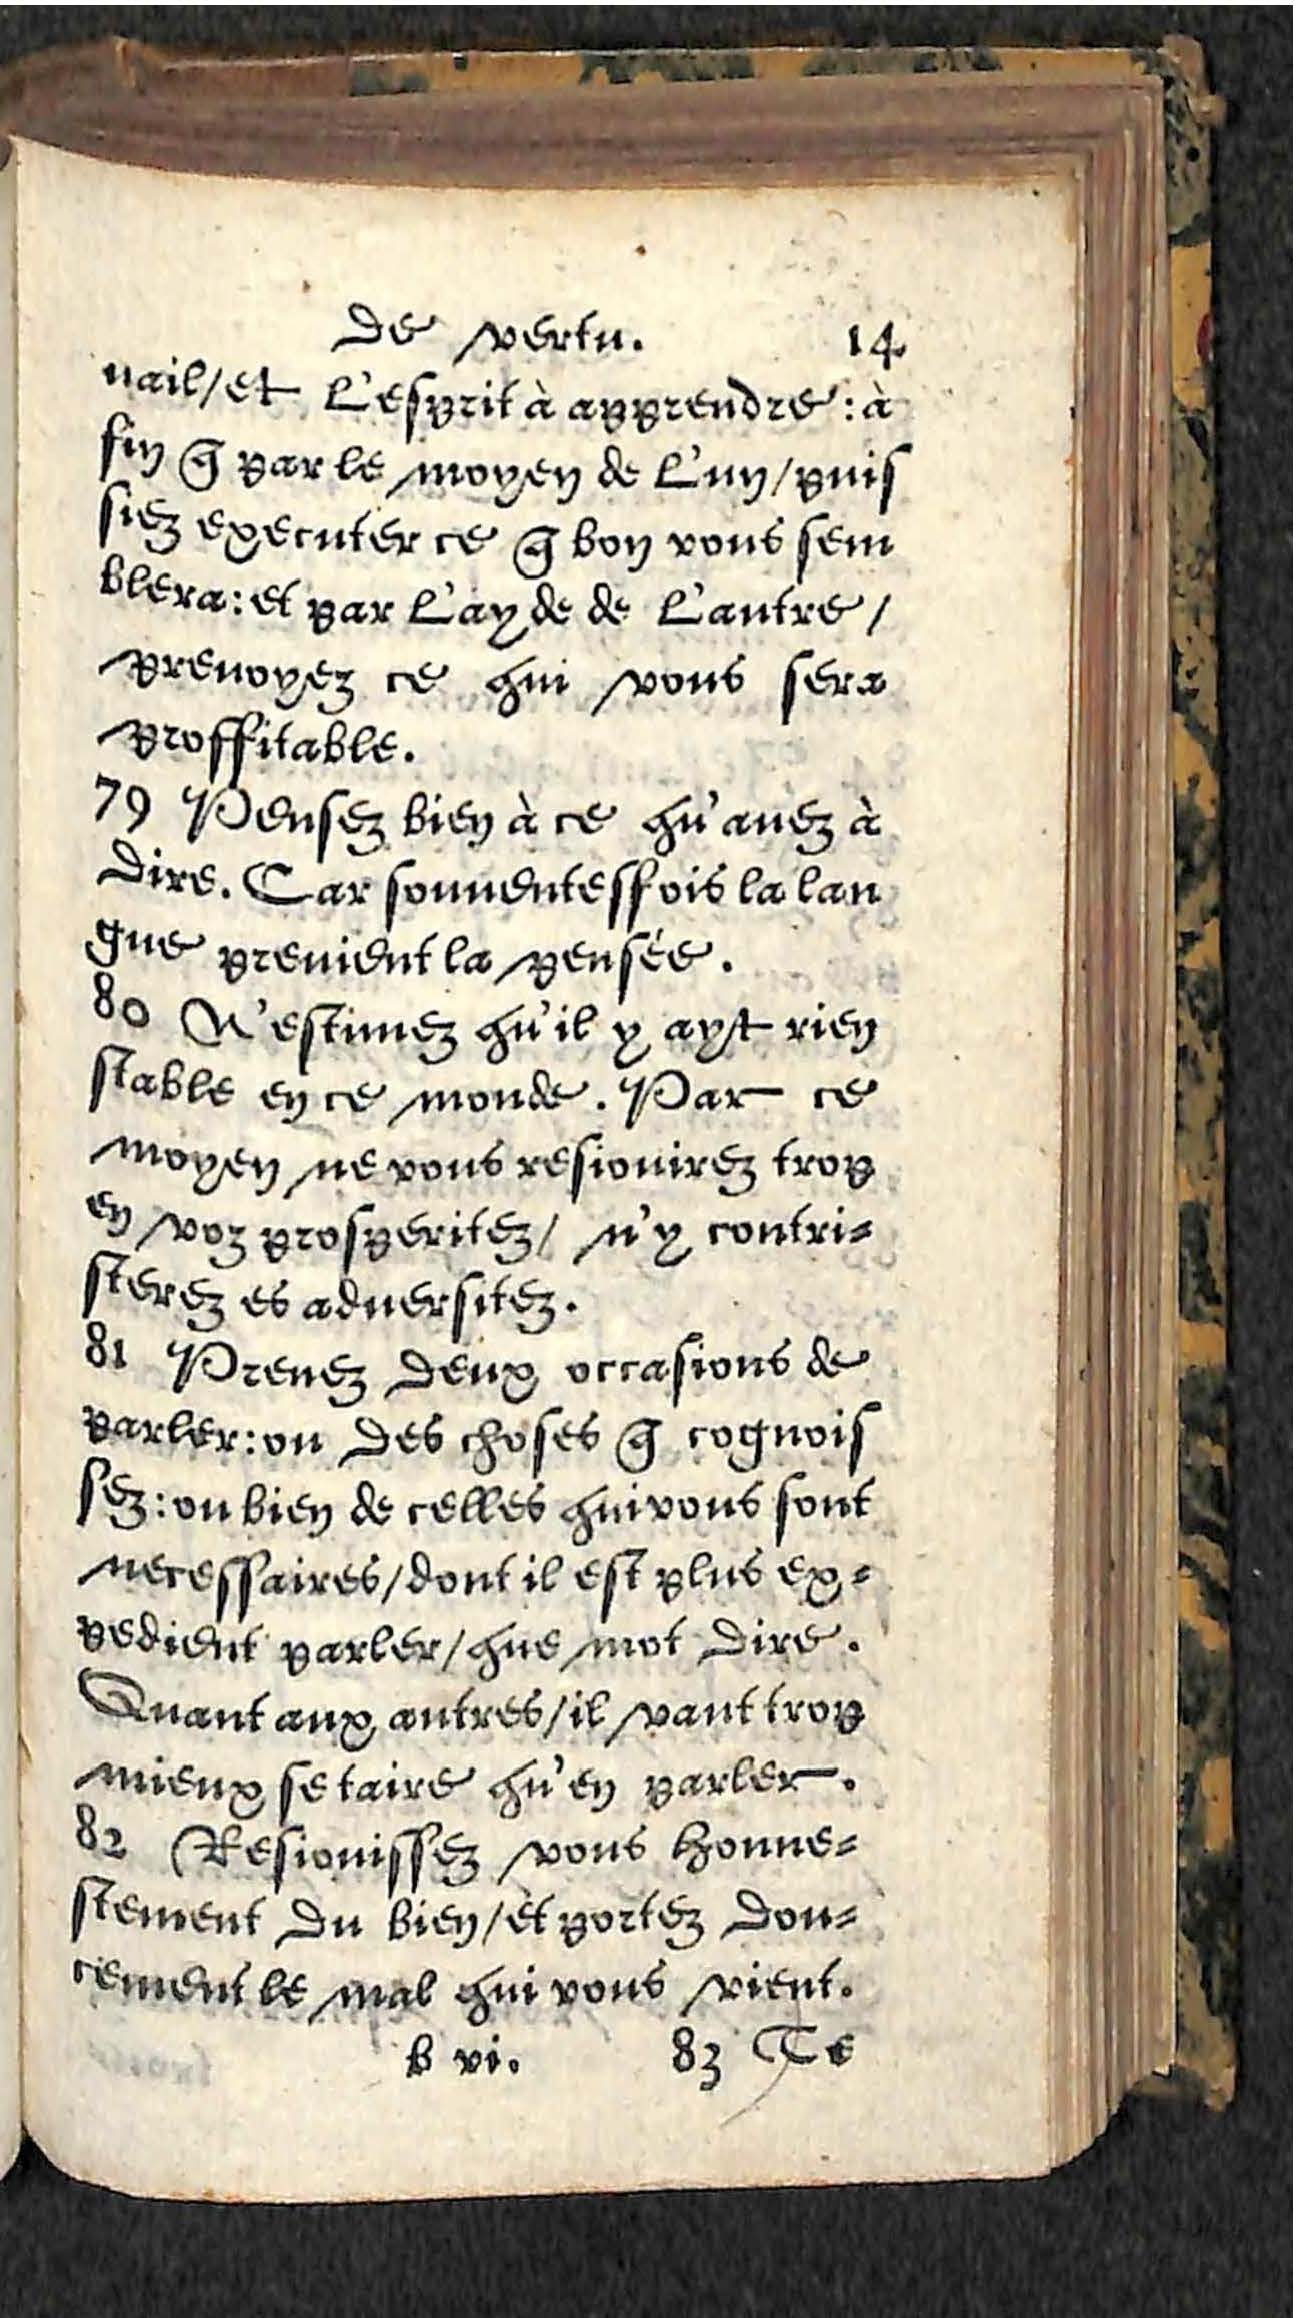 De vertu. 14
uail/et L'esprit à apprendre: à
fin q̃ par le moyen de L'un/puis
siez executer ce q̃ bon vous sem
blera: et par L'ayde de L'autre/
preuoyez ce qui vous sera
proffitable.
79 Pensez bien à ce qu'auez à
dire. Car souuentesfois la lan
gue preuient la pensée.
80 N'estimez qu'il y ayt rien
stable en ce monde. Par ce
moyen ne vous resiouirez trop
en voz prosperitez/ n'y contri-
sterez es aduersitez.
81 Prenez deux occasions de
parler: ou des choses q̃ cognois
sez: ou bien de celles qui vous sont
necessaires/dont il est plus ex-
pedient parler/que mot dire.
Quant aux autres/il vaut trop
mieux se taire qu'en parler.
82 Resiouissez vous honne-
stement du bien/et portez dou-
cement le mal qui vous vient.
b vi. 83 Te